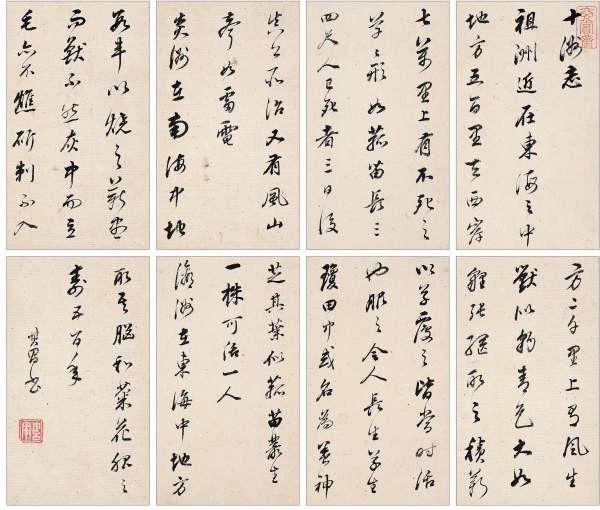 十洲志
祖洲近在東海之中
地方五百里去西岸
七萬里上有不死之
草草形如菰苗長三
四尺人已死者三日復
真公所治又有風山
聲如雷電
炎洲在南海中地
數車以燒之薪盡
而獸不然灰中而立
毛亦不燋斫刺不入
方二千里上有風生
獸似豹青色大如
狸張網取之積薪
以草覆之皆當時活
也服之令人長生草生
瓊田中或名為養神
芝其葉似菰苗叢生
一株可活一人
瀛洲在東海中地方
取其腦和菊花服之
壽五百年
其昌書